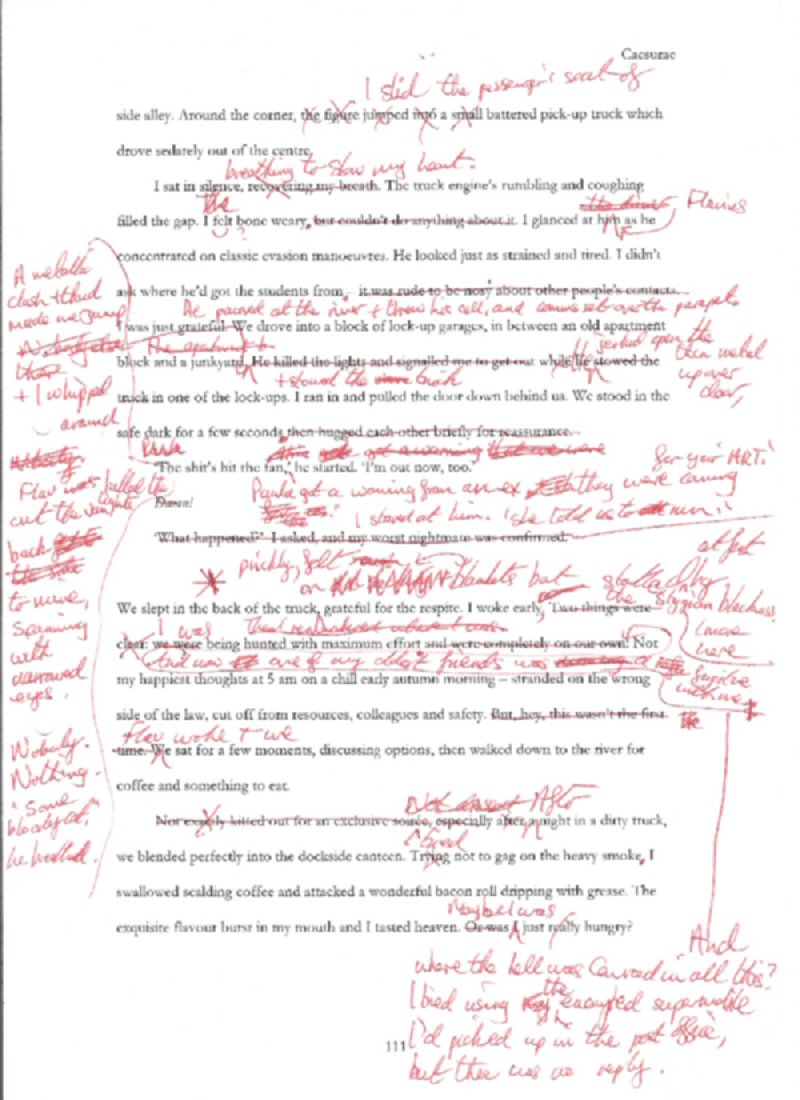 Caesurae
I slid the passenger's seat of
side alley. Around the corner, the figure jumped into a small battered pick-up truck which
drove sedately out of the centre.
breathing to slow my heart.
I sat in silence, recovering my breath. The truck engine's rumbling and coughing
the
the driver, Flavius
filled the gap. I felt bone weary, but couldn't do anything about it. I glanced at him as he
concentrated on classic evasion manoeuvres. He looked just as strained and tired. I didn't
ask where he'd got the students from, it was rude to be nosy about other people's contacts.
He paused at the river + threw his cell, and over the parapet.
I was just grateful. We drove into a block of lock-up garages, in between an old apartment
jerked open the
metal
up over
door,
block and a junkyard. He killed the lights and signalled me to get out while he stowed the
+ stowed the truck
truck in one of the lock-ups. I ran in and pulled the door down behind us. We stood in the
safe dark for a few seconds then hugged each other briefly for reassurance.
'The shit's hit the fan,' he started. 'I'm out now, too.'
for your
Paula got a warning from an ex they were coming
Damn!
I stared at him. 'She told us to run.'
'What happened?' I asked, and my worst nightmare was confirmed.
A metallic
clash + thud
made me jump
+ I whipped
around
Flav killed the
cut the lights
back
to move,
scanning
with
narrowed
eyes.
Nobody.
Nothing.
'Some
bloody cat,'
he breathed.
prickly, felt
on blankets but
at first
the Stygian blackness.
We slept in the back of the truck, grateful for the respite. I woke early, Two things were
I was
clear: we were being hunted with maximum effort and were completely on our own. Not
and now one of my oldest friends was a
fugitive
my happiest thoughts at 5 am on a chill early autumn morning – stranded on the wrong
side of the law, cut off from resources, colleagues and safety. But, hey, this wasn't the first
Flav woke + we
time. We sat for a few moments, discussing options, then walked down to the river for
coffee and something to eat.
After
Not exactly kitted out for an exclusive soirée, especially after a night in a dirty truck,
I tried
we blended perfectly into the dockside canteen. Trying not to gag on the heavy smoke, I
swallowed scalding coffee and attacked a wonderful bacon roll dripping with grease. The
Maybe I was
exquisite flavour burst in my mouth and I tasted heaven. Or was I just really hungry?
And
where the hell was Conrad in all this?
I tried using the encrypted supermobile
I'd picked up in the post office,
but there was no reply.
111